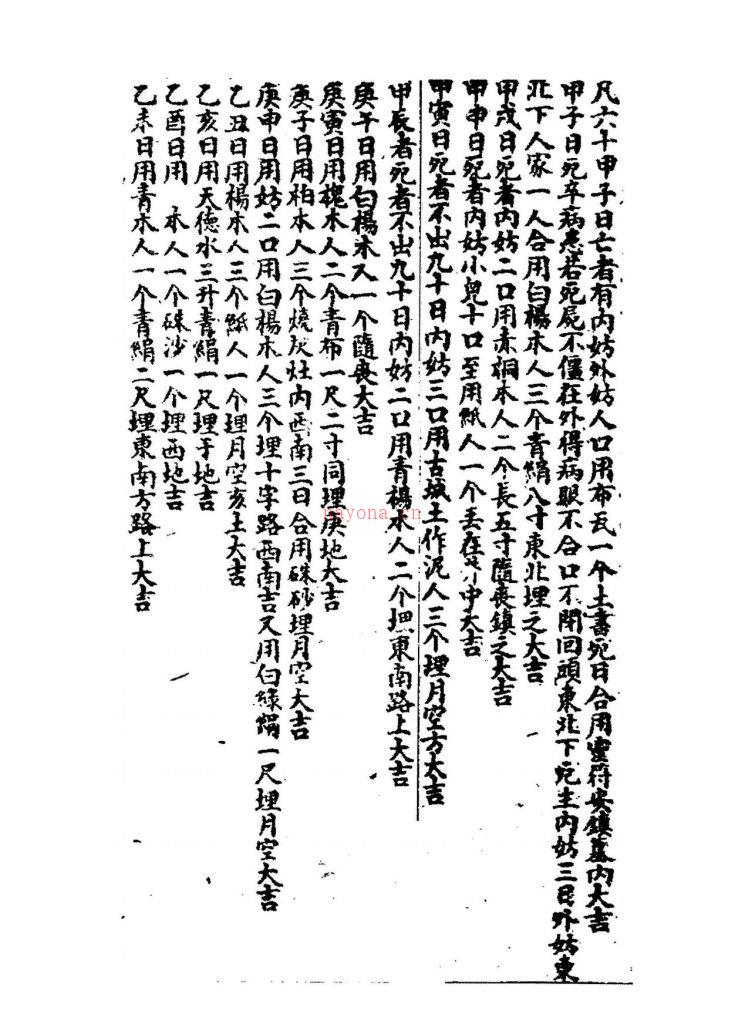 凡六十甲子日亡者有内妨外妨人口用布瓦一个上書死日合用靈符安鎮墓内大吉
甲子日死卒病患若死屍不僵在外得病眼不合口不閉回頭東北下死主内妨三口外妨東
北下人家一人合用白楊木人三个青絹八寸東北埋之大吉
甲戌日死者内妨二口用赤桐木人二个長五寸隨喪鎮之大吉
甲申日死者内妨小兒十口至用紙人一个丢在中大吉
甲寅日死者不出九十日内妨三口用古城土作泥人三个埋月空方大吉
甲辰者死者不出九十日内妨二口用青楊木人二个埋東南路上大吉
庚午日用白楊木人一个隨喪大吉
庚寅日用槐木人二个青布一尺二寸同埋庚地大吉
庚子日用柏木人三个燒灰灶内西南三日合用硃砂埋月空大吉
庚申日用妨二口用白楊木人三个埋十字路西南吉又用白綠絹一尺埋月空大吉
乙丑日用楊木人三个紙人一个埋月空亥土大吉
乙亥日用天德水三升青絹一尺埋于地吉
乙酉日用 木人一个硃沙一个埋西地吉
乙未日用青木人一个青絹二尺埋東南方路上大吉
nayona.cn